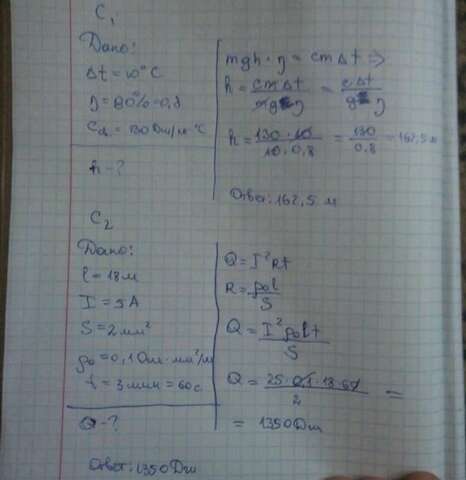 C₁
Дано:
Δt = 10°C
η = 80% = 0,8
h - ?
mgh · η = cmΔt ⇒
h = cmΔt / mgη = cΔt / gη
h = 130 · 10 / 10 · 0,8 = 130 / 0,8 = 162,5 м
Ответ: 162,5 м
C₂
Дано:
l = 18 м
I = 5 А
S = 2 мм²
ρ₀ = 0,1 Ом·мм²/м
t = 3 мин = 60 с
Q - ?
Q = I²Rt
R = ρ₀l / S
Q = I²ρ₀lt / S
Q = 25 · 0,1 · 18 · 60 / 2 =
= 1350 Дж
Ответ: 1350 Дж